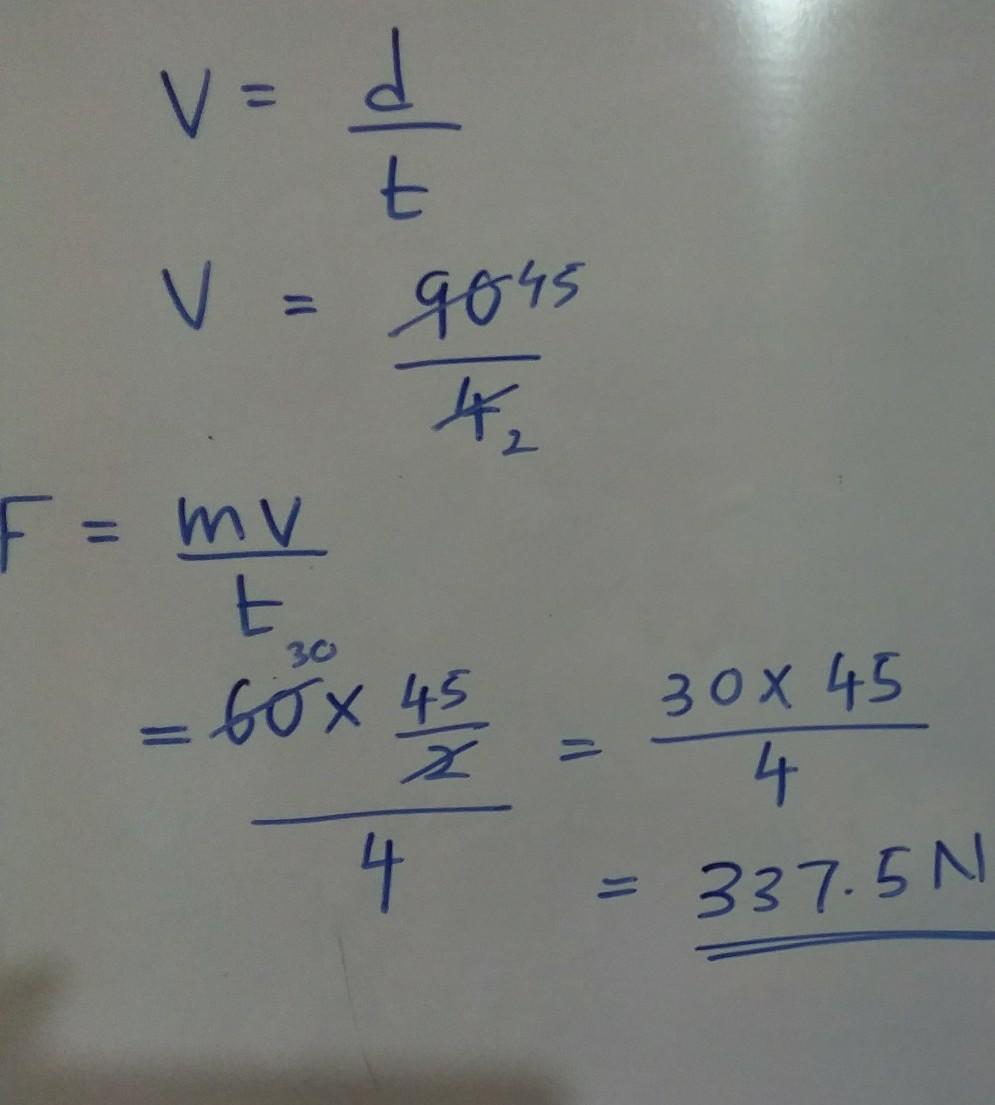 V = d/t
V = 90 45/4 2
F = mv/t
= 60 30 x 45/2 / 4 = 30 x 45/4
= 337.5 N